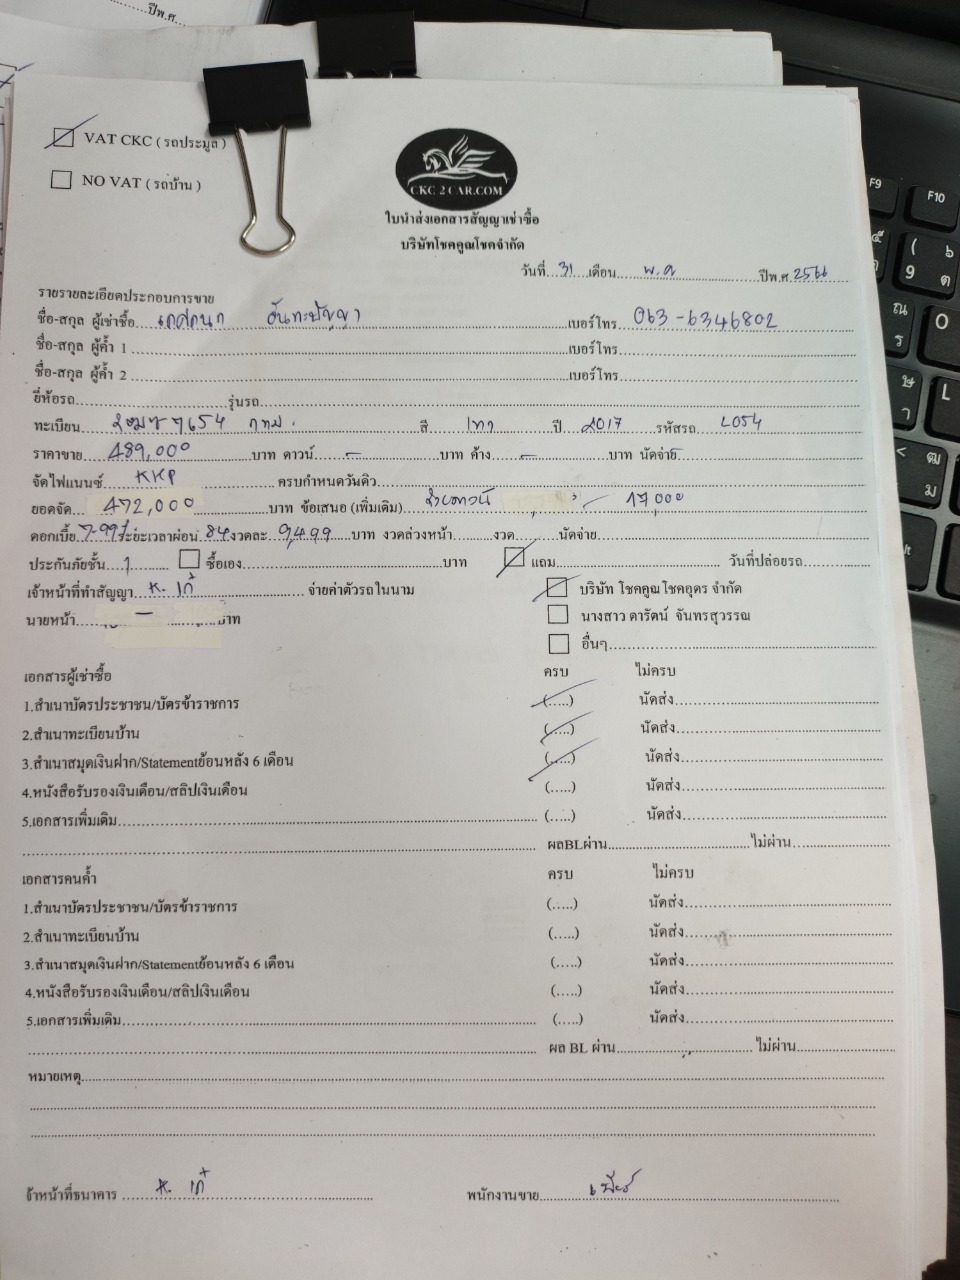 ปีพ.ศ.
VAT CKC ( รถประมูล )
NO VAT ( รถบ้าน )
CKC 2 CAR.COM
ใบนำส่งเอกสารสัญญาเช่าซื้อ
บริษัทโชคคูณโชคจำกัด
วันที่ 31 เดือน พ.ค ปีพ.ศ. 2566
รายรายละเอียดประกอบการขาย
ชื่อ-สกุล ผู้เช่าซื้อ เกศกนก เบอร์โทร 063-6346802
ชื่อ-สกุล ผู้ค้ำ 1 เบอร์โทร
ชื่อ-สกุล ผู้ค้ำ 2 เบอร์โทร
ยี่ห้อรถ รุ่นรถ
ทะเบียน 7654 กทม. สี เทา ปี 2017 รหัสรถ L054
ราคาขาย 489,000 บาท ดาวน์ - บาท ค้าง - บาท นัดจ่าย
จัดไฟแนนซ์ KKP ครบกำหนดวันดิว
ยอดจัด 472,000 บาท ข้อเสนอ (เพิ่มเติม) 17,000
ดอกเบี้ย 7.99% ระยะเวลาผ่อน 84 งวดละ 9,499 บาท งวดล่วงหน้า งวด นัดจ่าย
ประกันภัยชั้น 1 ซื้อเอง บาท แถม วันที่ปล่อยรถ
เจ้าหน้าที่ทำสัญญา K. เก๋ จ่ายค่าตัวรถในนาม บริษัท โชคคูณโชคอุดร จำกัด
นายหน้า - บาท นางสาว ดารัตน์ จันทรสุวรรณ
อื่นๆ
เอกสารผู้เช่าซื้อ ครบ ไม่ครบ
1.สำเนาบัตรประชาชน/บัตรข้าราชการ (.....) นัดส่ง
2.สำเนาทะเบียนบ้าน (.....) นัดส่ง
3.สำเนาสมุดเงินฝาก/Statementย้อนหลัง 6 เดือน (.....) นัดส่ง
4.หนังสือรับรองเงินเดือน/สลิปเงินเดือน (.....) นัดส่ง
5.เอกสารเพิ่มเติม (.....) นัดส่ง
ผลBLผ่าน ไม่ผ่าน
เอกสารคนค้ำ ครบ ไม่ครบ
1.สำเนาบัตรประชาชน/บัตรข้าราชการ (.....) นัดส่ง
2.สำเนาทะเบียนบ้าน (.....) นัดส่ง
3.สำเนาสมุดเงินฝาก/Statementย้อนหลัง 6 เดือน (.....) นัดส่ง
4.หนังสือรับรองเงินเดือน/สลิปเงินเดือน (.....) นัดส่ง
5.เอกสารเพิ่มเติม (.....) นัดส่ง
ผล BL ผ่าน ไม่ผ่าน
หมายเหตุ
จ้าหน้าที่ธนาคาร K. เก๋ พนักงานขาย